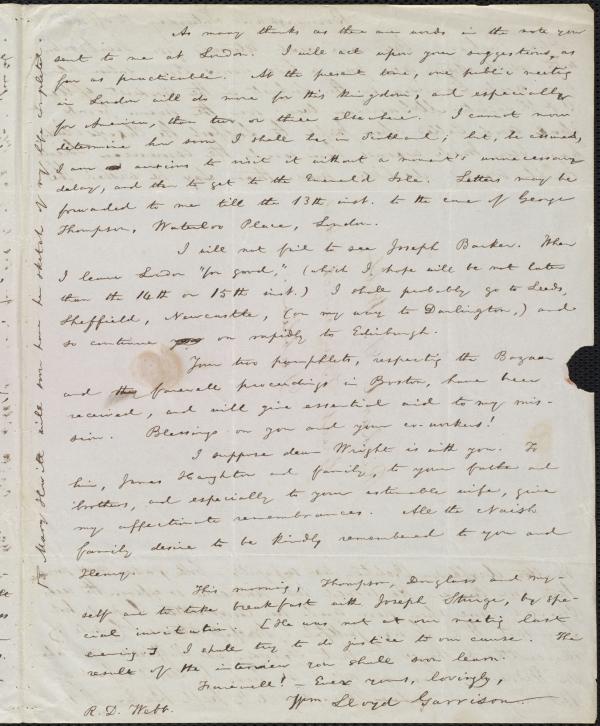 As many thanks as there are words in the note you
sent to me at London. I will act upon your suggestions, as
far as practicable. At the present time, one public meeting
in London will do more for this kingdom, and especially
for America, than two or three elsewhere. I cannot now
determine how soon I shall be in Scotland; but, be assured,
I am anxious to visit it without a moment's unnecessary
delay, and then to get to the Emerald Isle. Letters may be
forwarded to me till the 13th inst. to the care of George
Thompson, Waterloo Place, London.
I will not fail to see Joseph Barker. When
I leave London "for good," (which I hope will be not later
than the 14th or 15th inst.) I shall probably go to Leeds,
Sheffield, Newcastle, (on my way to Darlington,) and
so continue on rapidly to Edinburgh.
Your two pamphlets, respecting the Bazaar
and farewell proceedings in Boston, have been
received, and will give essential aid to my mis-
sion. Blessings on you and your co-workers!
I suppose dear Wright is with you. To
him, James Haughton and family, to your father and
brothers, and especially to your estimable wife, give
my affectionate remembrances. All the Naish
family desire to be kindly remembered to you and
Henry.
This morning, Thompson, Douglass and my-
self are to take breakfast with Joseph Sturge, by spe-
cial invitation. [He was not at our meeting last
evening.] I shall try to do justice to our cause. The
result of the interview you shall soon learn.
Farewell! — Ever yours, lovingly,
Wm. Lloyd Garrison.
R. D. Webb.
Mary Howitt will soon have her sketch of my life completed.